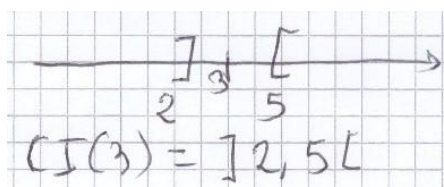 ] 3 [
2 5
CI(3) = ]2,5[